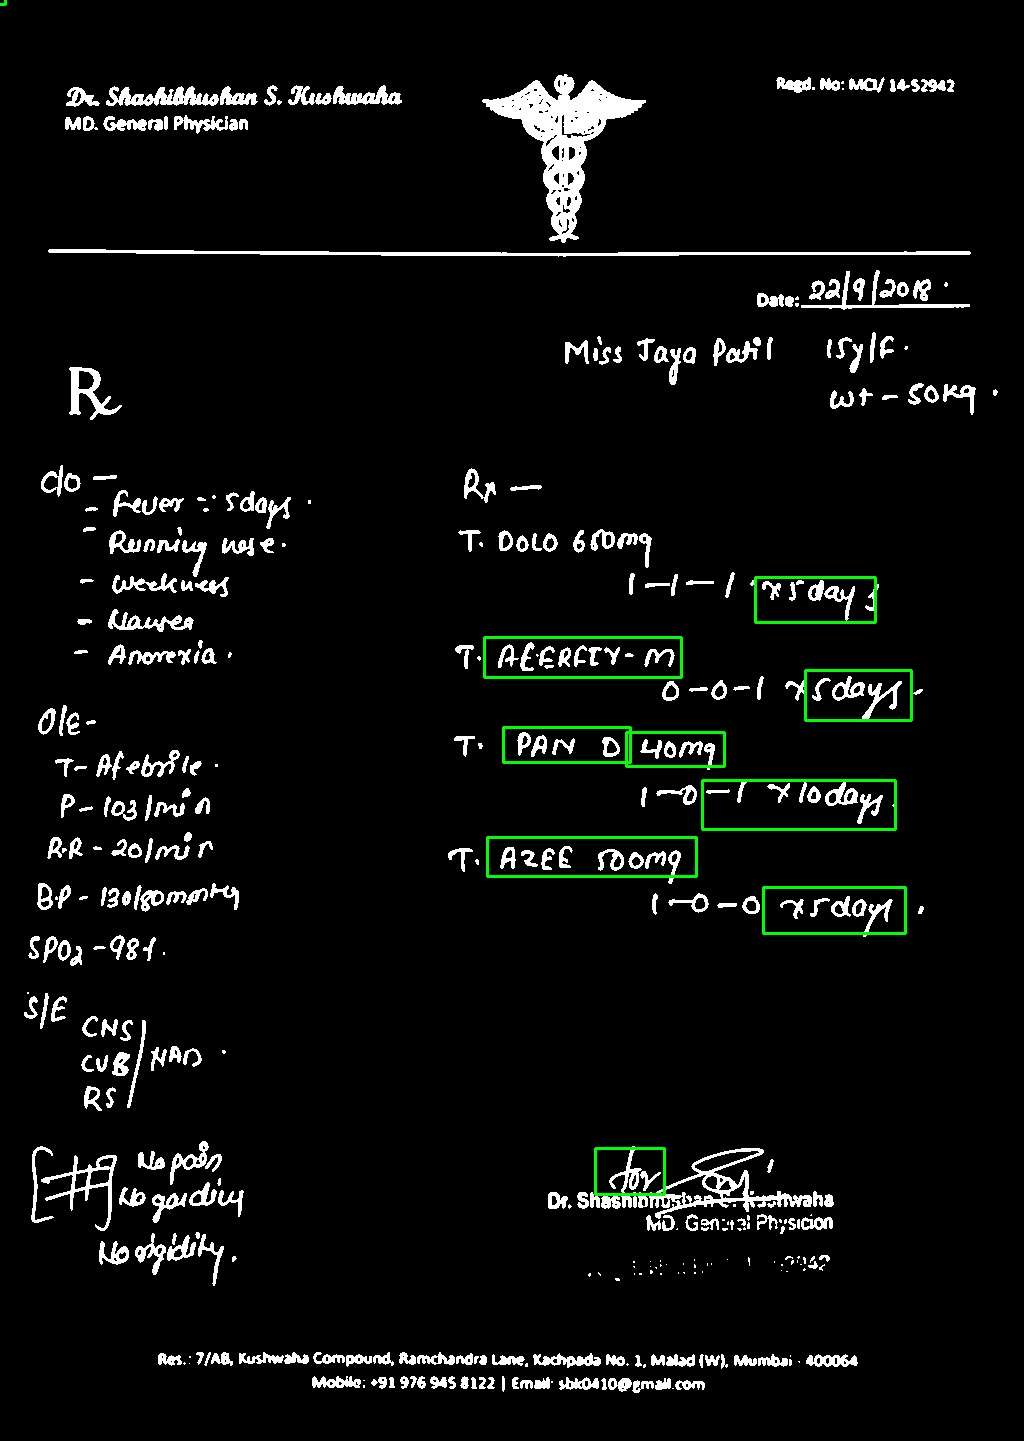 Dr. Shashibhushan S. Kushwaha
MD. General Physician
Regd. No: MCI/ 14-52942
Date: 22/9/2018.
Miss Jaya Patil 15y/F.
wt - 50kg.
Rx
c/o -
- Fever :: 5days.
- Running nose.
- Weakness
- Nausea
- Anorexia.
O/E -
T- Afebrile.
P- 103/min
R.R - 20/min
B.P - 130/80mmHg
SPO2 - 98%.
S/E
CNS
CVB
RS
/NAD.
No pain
No garding
No rigidity.
Rx -
T. DOLO 650mg
1-1-1 x 5 days
T. - M
0-0-1 x 5days.
T. PAN D 40mg
1-0-1 x 10days.
T. AZEE 500mg
1-0-0 x 5 days.
for
Dr. Shashibhushan S. Kushwaha
MD. General Physicion
52942
Res.: 7/AB, Kushwaha Compound, Ramchandra Lane, Kachpada No. 1, Malad (W), Mumbai - 400064
Mobile: +91 976 945 8122 | Email: sbk0410@gmail.com